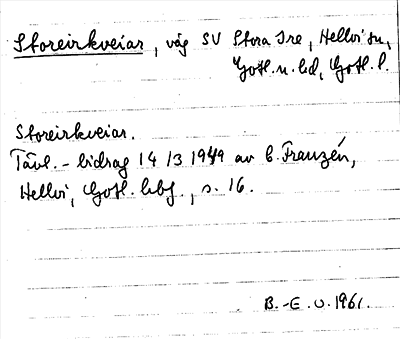 Storeirkveiar, väg SV Stora Ire, Hellvi sn,
Gotl. n. hd, Gotl. l.
Storeirkveiar.
Tävl. - bidrag 14/3 1949 av C. Franzén,
Hellvi, Gotl. hbf., s. 16.
B.-E. U. 1961.